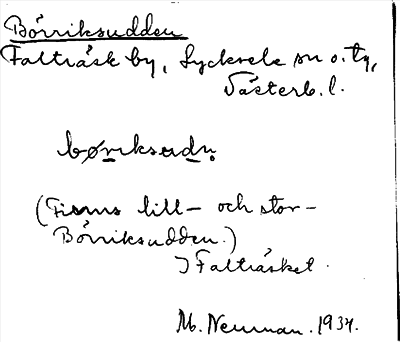 Börriksudden
Falträsk by, Lycksele sn o. tg,
Västerb. l.
børiksudn
(Finns lill- och stor-
Börriksudden.)
I Falträsket.
M. Neuman. 1934.